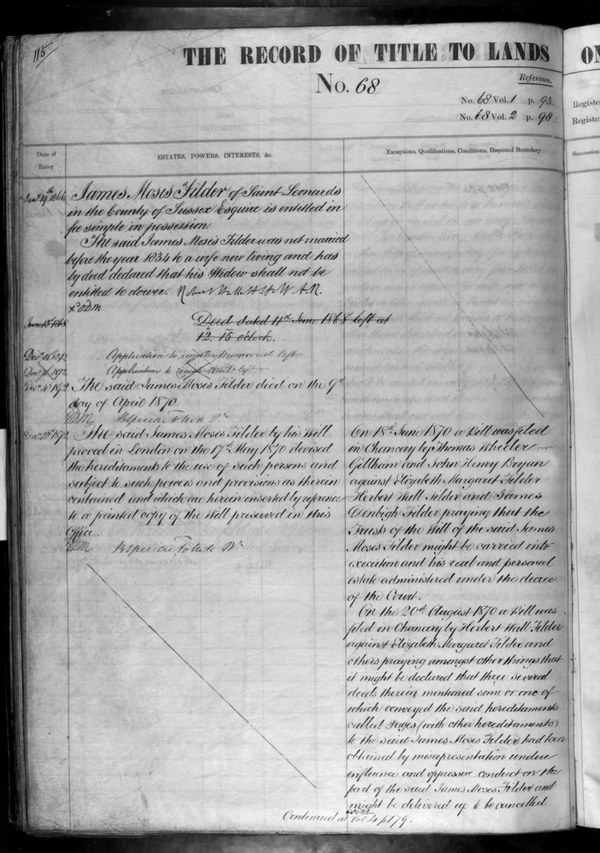 115
THE RECORD OF TITLE TO LANDS
No. 68
Reference.
No. 68 Vol. 1 p. 93.
No. 68 Vol. 2 p. 98
Date of Entry
ESTATES, POWERS, INTERESTS, &c.
Exceptions, Qualifications, Conditions, Disputed Boundary
James Moses Tilder of Saint Leonards
in the County of Sussex Esquire is entitled in
fee simple in possession
The said James Moses Tilder was not married
before the year 1834 to a wife now living and has
by deed declared that his Widow shall not be
entitled to dower.
Deed dated 11th June 1868 left at
12.15 o'clock.
Application to
Application to
The said James Moses Tilder died on the 9th
day of April 1870.
The said James Moses Tilder by his Will
proved in London on the 17th May 1870 devised
the hereditaments to the use of such persons and
subject to such powers and provisions as therein
contained and which are herein inserted by reference
to a printed copy of the Will preserved in this
Office.
On 18th June 1870 a Bill was filed
in Chancery by Thomas Wheeler
Gillham and John Henry Bryan
against Elizabeth Margaret Tilder
Herbert Wall Tilder and James
Denbigh Tilder praying that the
Trusts of the Will of the said James
Moses Tilder might be carried into
execution and his real and personal
estate administered under the decree
of the Court.
On the 20th August 1870 a Bill was
filed in Chancery by Herbert Wall Tilder
against Elizabeth Margaret Tilder and
others praying amongst other things that
it might be declared that three several
deeds therein mentioned some or one of
which conveyed the said hereditaments
called Pages (with other hereditaments)
to the said James Moses Tilder, had been
obtained by misrepresentation undue
influence and oppressive conduct on the
part of the said James Moses Tilder and
might be delivered up to be cancelled
Continued at Vol. 4 p 179.
ON
Registe
Registe